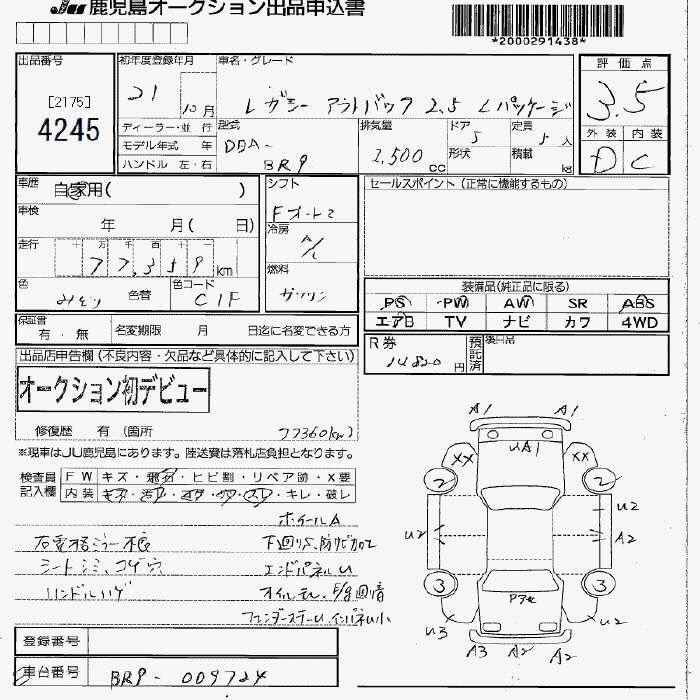 JU 鹿児島オークション出品申込書
*2000291438*
出品番号
[2175]
4245
初年度登録年月
21
10月
車名・グレード
レガシー アウトバック 2.5 Lパッケージ
評価点
3.5
外装 内装
D C
ディーラー・並行
モデル年式 年
ハンドル 左・右
型式
DBA-
BR9
排気量
2,500
cc
ドア
5
形状
定員
5人
積載
kg
車歴
自家用( )
車検
年 月( 日)
走行
十 万 千 百 十 一
77,359 km
色
色替
色コード
C1F
シフト
Fオート
冷房
A/C
燃料
ガソリン
セールスポイント(正常に機能するもの)
装備品(純正品に限る)
PS PW AW SR ABS
エアB TV ナビ カワ 4WD
保証書
有・無
名変期限 月 日迄に名変できる方
R券
14820 円
預託済
後日品
出品店申告欄(不良内容・欠品など具体的に記入して下さい)
オークション初デビュー
修復歴 有(箇所
77360(km)
※現車はJU鹿児島にあります。陸送費は落札店負担となります。
検査員
記入欄
FW キズ・飛石・ヒビ割・リペア跡・X要
内装・キズ・汚れ・コゲ・穴・スレ・キレ・破レ
ホイールA
右電格ミラー不良
下回りS、防サビカロエ
シートシミ、コゲ穴
エンドパネルU
ハンドルハゲ
フェンダーステーU、インパネ小
A1 A1
UA1
XX XX
2 2
U2 U2
A2
3 3
U3 U2
A3 A2 A2
登録番号
車台番号
BR9-009724